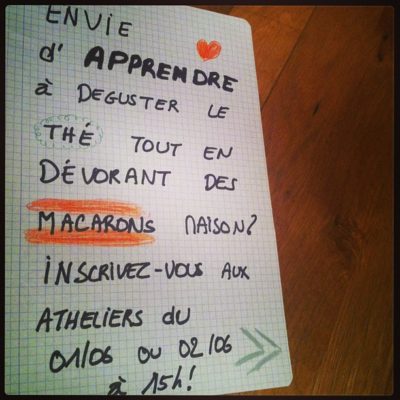 ENVIE
d'APPRENDRE
à DEGUSTER LE
THÉ TOUT EN
DÉVORANT DES
MACARONS MAISON?
INSCRIVEZ-VOUS AUX
ATHELIERS DU
01/06 OU 02/06
à 15h!